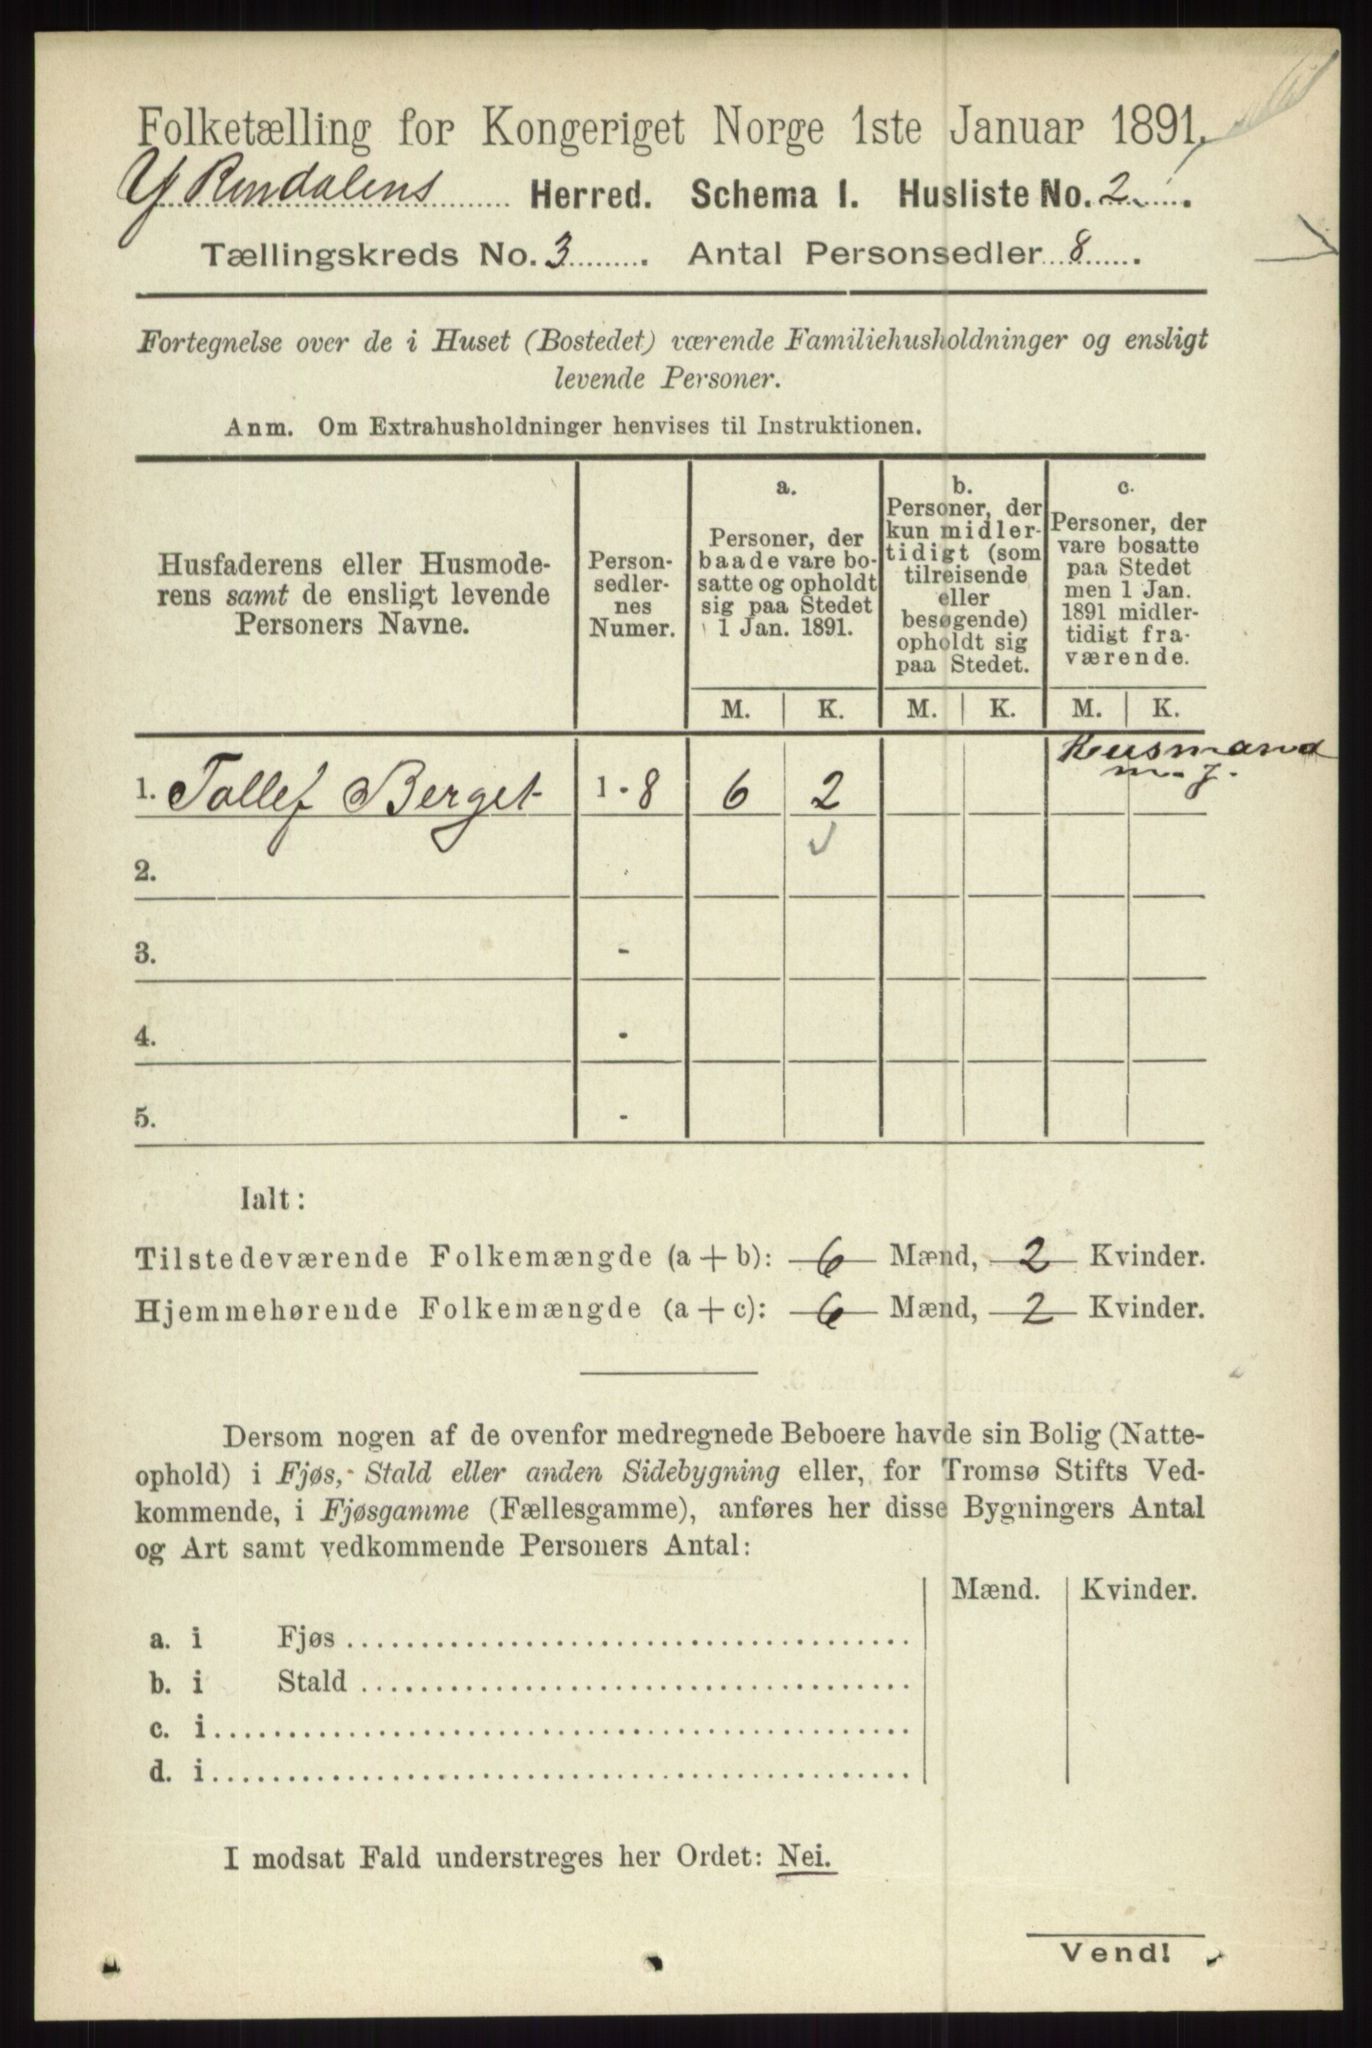 Folketælling for Kongeriget Norge 1ste Januar 1891.
Y Rendalens Herred. Schema I. Husliste No. 2.
Tællingskreds No. 3. Antal Personsedler 8.
Fortegnelse over de i Huset (Bostedet) værende Familiehusholdninger og ensligt
levende Personer.
Anm. Om Extrahusholdninger henvises til Instruktionen.
Husfaderens eller Husmode-
rens samt de ensligt levende
Personers Navne.
Person-
sedler-
nes
Numer.
a.
Personer, der
baade vare bo-
satte og opholdt
sig paa Stedet
1 Jan. 1891.
b.
Personer, der
kun midler-
tidigt (som
tilreisende
eller
besøgende)
opholdt sig
paa Stedet.
c.
Personer, der
vare bosatte
paa Stedet
men 1 Jan.
1891 midler-
tidigt fra-
værende.
M. K. M. K. M. K.
Husmand
m. j.
1. Tollef Berget 1 - 8 6 2
2. -
3. -
4. -
5. -
Ialt:
Tilstedeværende Folkemængde (a + b): 6 Mænd, 2 Kvinder.
Hjemmehørende Folkemængde (a + c): 6 Mænd, 2 Kvinder.
Dersom nogen af de ovenfor medregnede Beboere havde sin Bolig (Natte-
ophold) i Fjøs, Stald eller anden Sidebygning eller, for Tromsø Stifts Ved-
kommende, i Fjøsgamme (Fællesgamme), anføres her disse Bygningers Antal
og Art samt vedkommende Personers Antal:
Mænd. Kvinder.
a. i Fjøs
b. i Stald
c. i
d. i
I modsat Fald understreges her Ordet: Nei.
Vend!